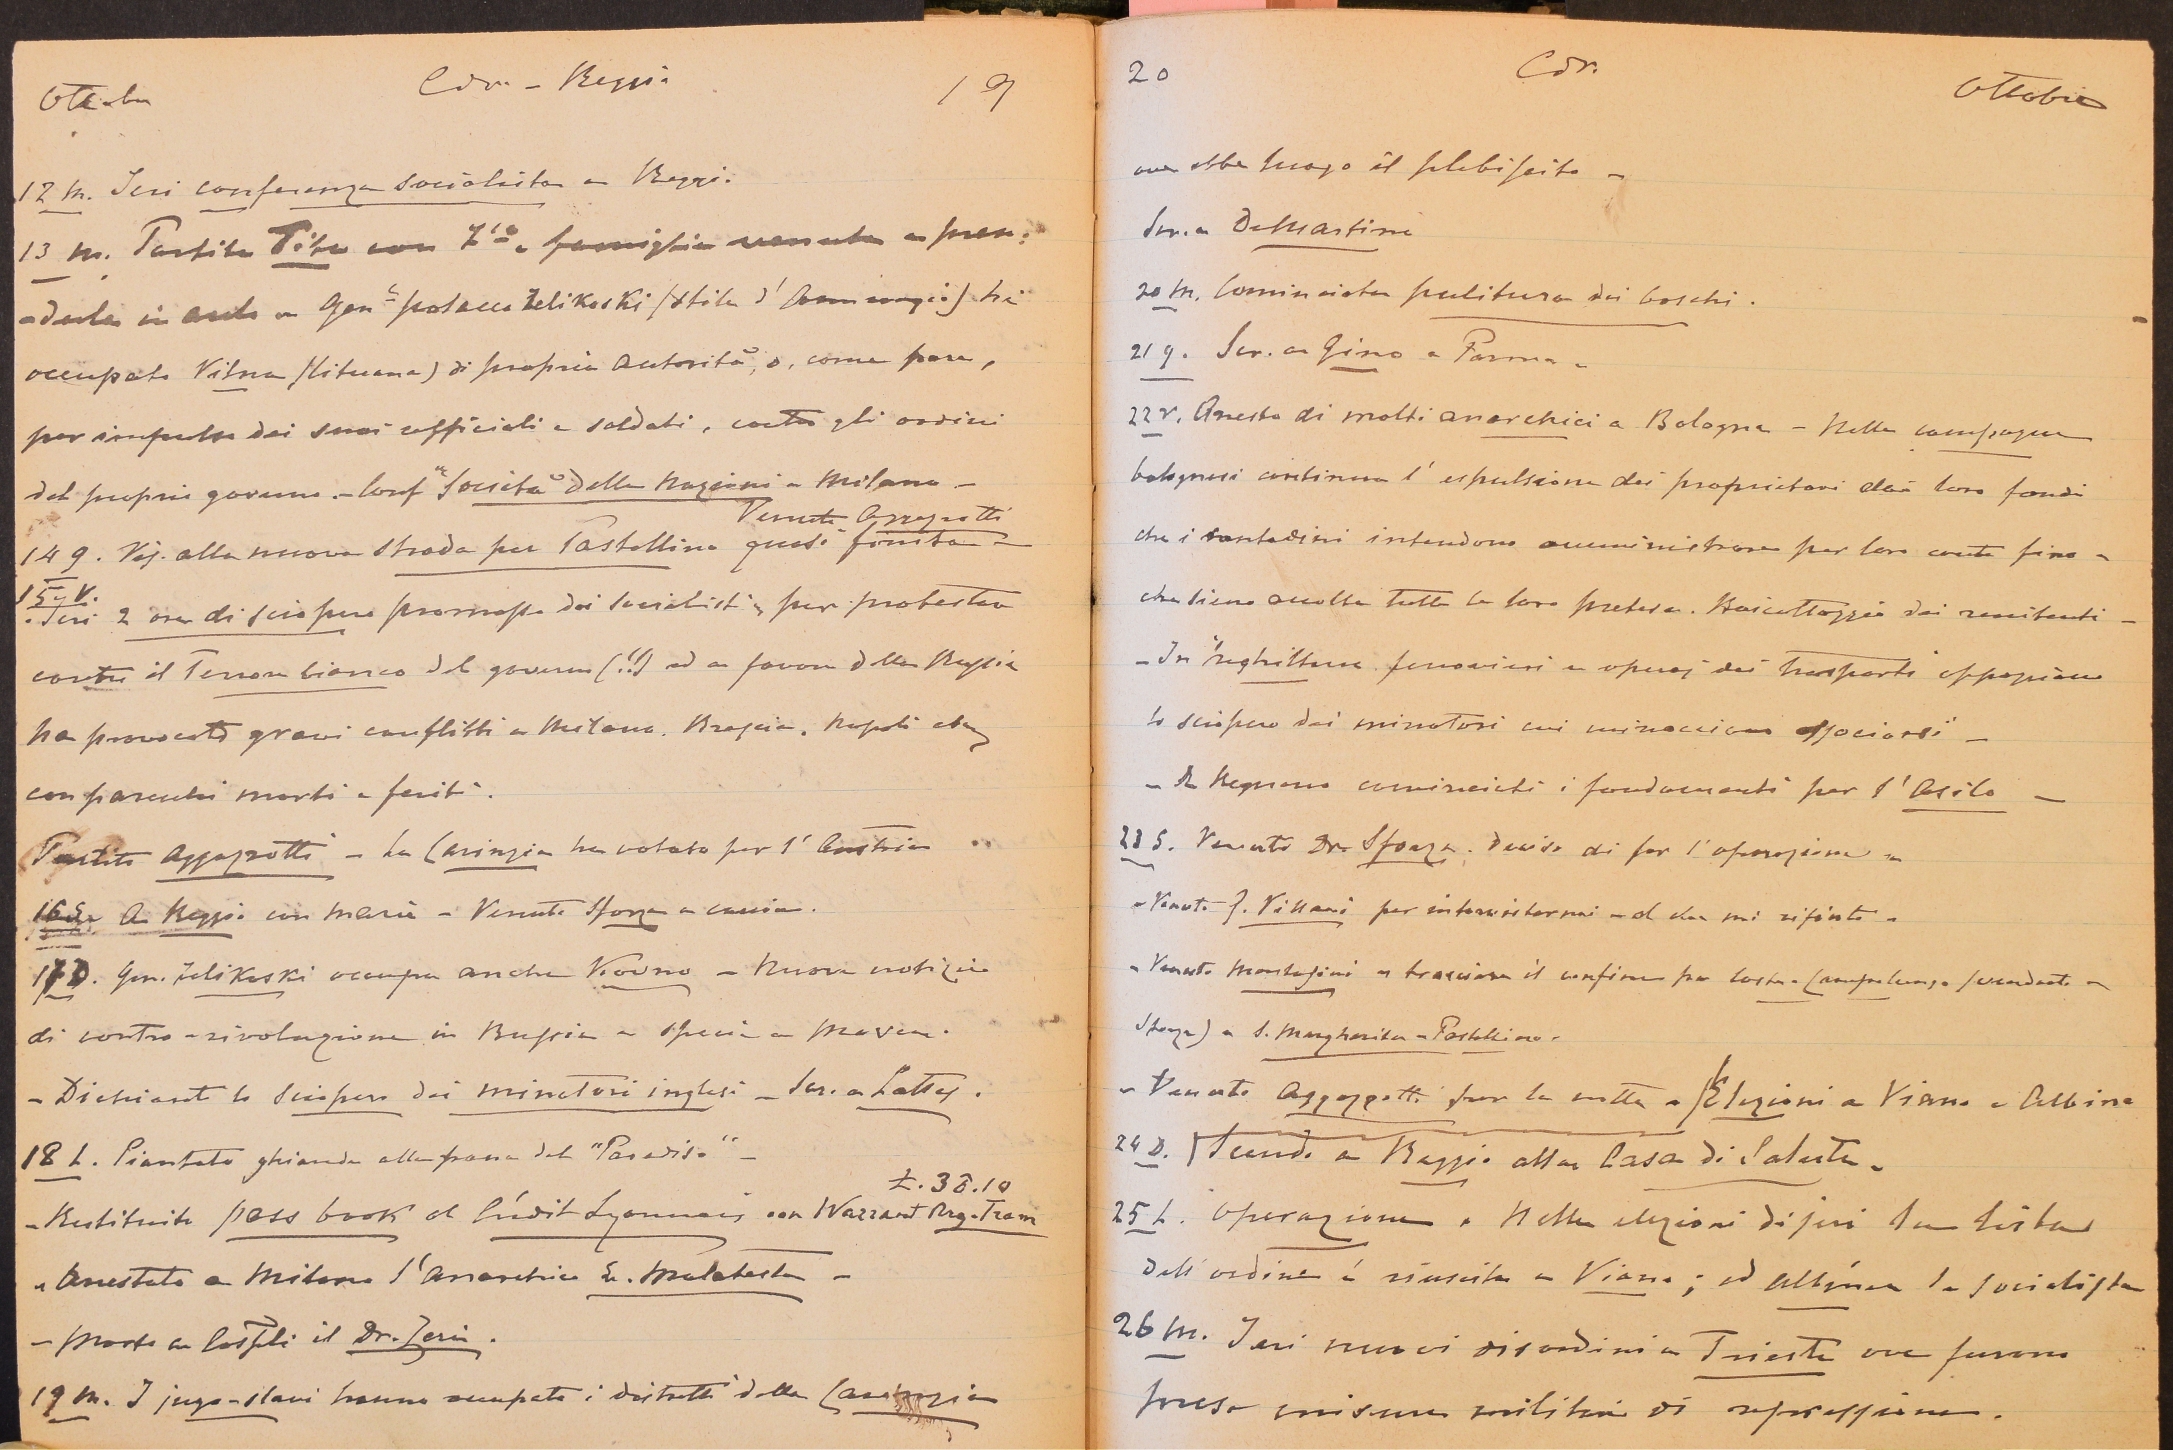 Ottobre
Cdr. - Reggio
19
12 m. Ieri conferenza socialista a Reggio.
13 m. Partita Tita con Z.ia e famiglia venuta a pren-
-derla in auto - Gen.e polacco Zelikoski (stile d'Annunzio) ha
occupato Vilna (Lituana) di propria autorità, o, come pare,
per impulso dei suoi ufficiali e soldati, contro gli ordini
del proprio governo. - Conf. "Società delle Nazioni" a Milano -
Venuto Aggazzotti
14 g. Vis. alla nuova strada per Pastellino quasi finita -
15 V.
. Ieri 2 ore di sciopero promosse dai socialisti per protestare
contro il Terrore bianco del governo (!!) ed a favore della Russia
ha provocato gravi conflitti a Milano, Brescia, Napoli etc.
con parecchi morti e feriti.
Partito Aggazzotti - La Carinzia ha votato per l'Austria
16 S. A Reggio con Maria - Venuto Sforza a caccia.
17 D. Gen. Zelikoski occupa anche Kovno - Nuove notizie
di contro-rivoluzione in Russia e specie a Mosca.
- Dichiarato lo sciopero dei minatori inglesi - Scr. a Lattes.
18 L. Piantato ghiande alla frana del "Paradiso" -
£. 38.10
- Restituito pass book al Crédit Lyonnais con Warrant Arg. Tram
- Arrestato a Milano l'anarchico E. Malatesta -
- Morto a il Dr. Zerio.
19 M. I jugo-slavi hanno occupato i distretti della Carinzia
20
Cdr.
Ottobre
ove ebbe luogo il plebiscito -
Scr. a DeMartino
20 M. Cominciata pulitura dei boschi.
21 g. Scr. a Gino a Parma -
22 V. Arresto di molti anarchici a Bologna - Nelle campagne
bolognesi continua l'espulsione dei proprietari dai loro fondi
che i contadini intendono amministrare per loro conto fino a
che siano accolte tutte le loro pretese. Boicottaggio dei renitenti -
- In Inghilterra ferrovieri e operai dei trasporti appoggiano
lo sciopero dei minatori cui minacciano associarsi -
- A Regnano cominciati i fondamenti per l'Asilo -
23 S. Venuto Dr. Sforza. Deciso di far l'operazione -
- Venuto Villani per intervistarmi - al che mi rifiuto -
- Venuto Montagini a tracciare il confine fra Costa-Campolungo (venduto a
Sforza) e S. Margherita-Pastellino.
- Venuto Aggazzotti per la notte - Elezioni a Viano e Albinea
24 D. Scendo a Reggio alla Casa di Salute -
25 L. Operazione. Nelle elezioni di jeri la lista
dell'ordine è riuscita a Viano; ed Albinea la socialista
26 M. Ieri nuovi disordini a Trieste ove furono
prese misure militari di repressione.